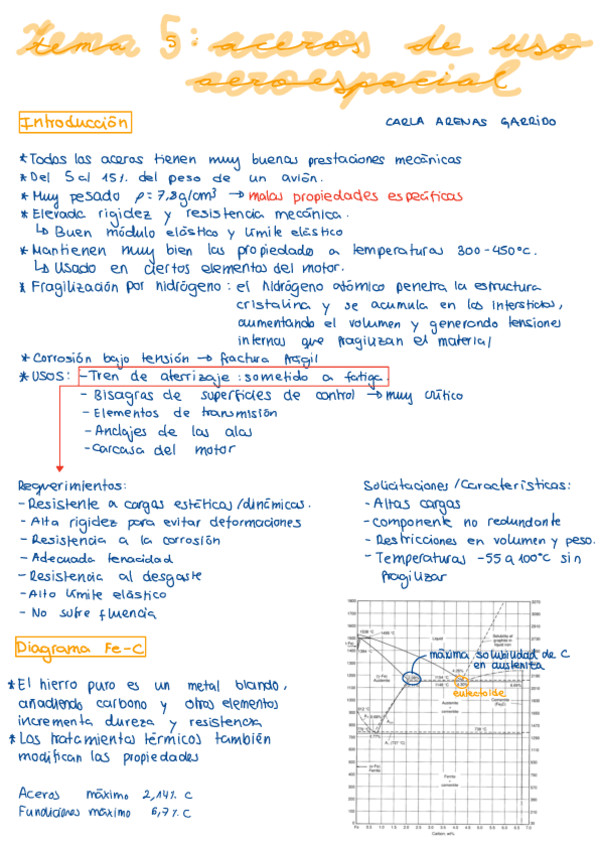 tema 5: aceros de uso
aeroespacial
Introducción
CARLA ARENAS GARRIDO
* Todos los aceros tienen muy buenas prestaciones mecánicas
* Del 5 al 15% del peso de un avión.
* Muy pesado ρ = 7,8g/cm³ → malas propiedades específicas
* Elevada rigidez y resistencia mecánica.
↳ Buen módulo elástico y límite elástico
* Mantienen muy bien las propiedades a temperaturas 300-450°C.
↳ Usado en ciertos elementos del motor.
* Fragilización por hidrógeno: el hidrógeno atómico penetra la estructura
cristalina y se acumula en los intersticios,
aumentando el volumen y generando tensiones
internas que fragilizan el material
* Corrosión bajo tensión → fractura frágil
* USOS: - Tren de aterrizaje: sometido a fatiga.
- Bisagras de superficies de control → muy crítico
- Elementos de transmisión
- Anclajes de las alas
- Carcasa del motor
Requerimientos:
- Resistente a cargas estáticas/dinámicas.
- Alta rigidez para evitar deformaciones
- Resistencia a la corrosión
- Adecuada tenacidad
- Resistencia al desgaste
- Alto límite elástico
- No sufre fluencia
Solicitaciones/Características:
- Altas cargas
- Componente no redundante
- Restricciones en volumen y peso.
- Temperaturas -55 a 100°C sin
fragilizar
Diagrama Fe-C
* El hierro puro es un metal blando,
añadiendo carbono y otros elementos
incrementa dureza y resistencia
* Los tratamientos térmicos también
modifican las propiedades
Aceros máximo 2,14% C
Fundiciones máximo 6,7% C
Liquid
Solubility of
graphite in
liquid iron
máxima solubilidad de C
en austenita
eutectoide
Austenite
+
cementite
Cementite
(Fe₃C)
Ferrite
+
cementite
Fe 0.5 1.0 1.5 2.0 2.5 3.0 3.5 4.0 4.5 5.0 5.5 6.0 6.5 7.0
Carbon, wt%